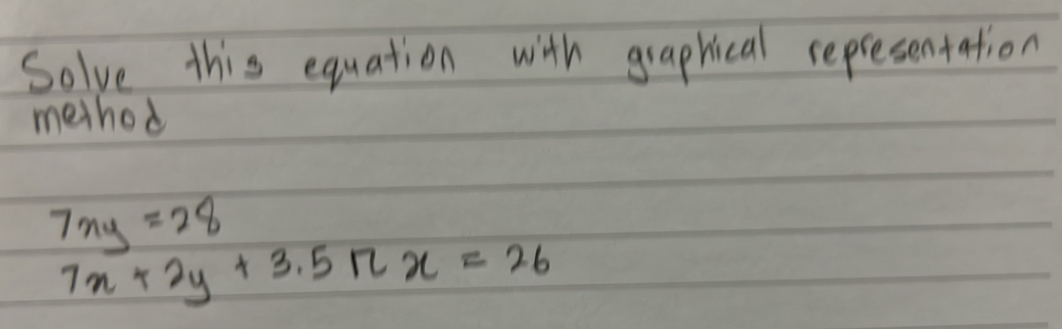 Solve this equation with graphical representation
method
7xy = 28
7x + 2y + 3.5 π x = 26